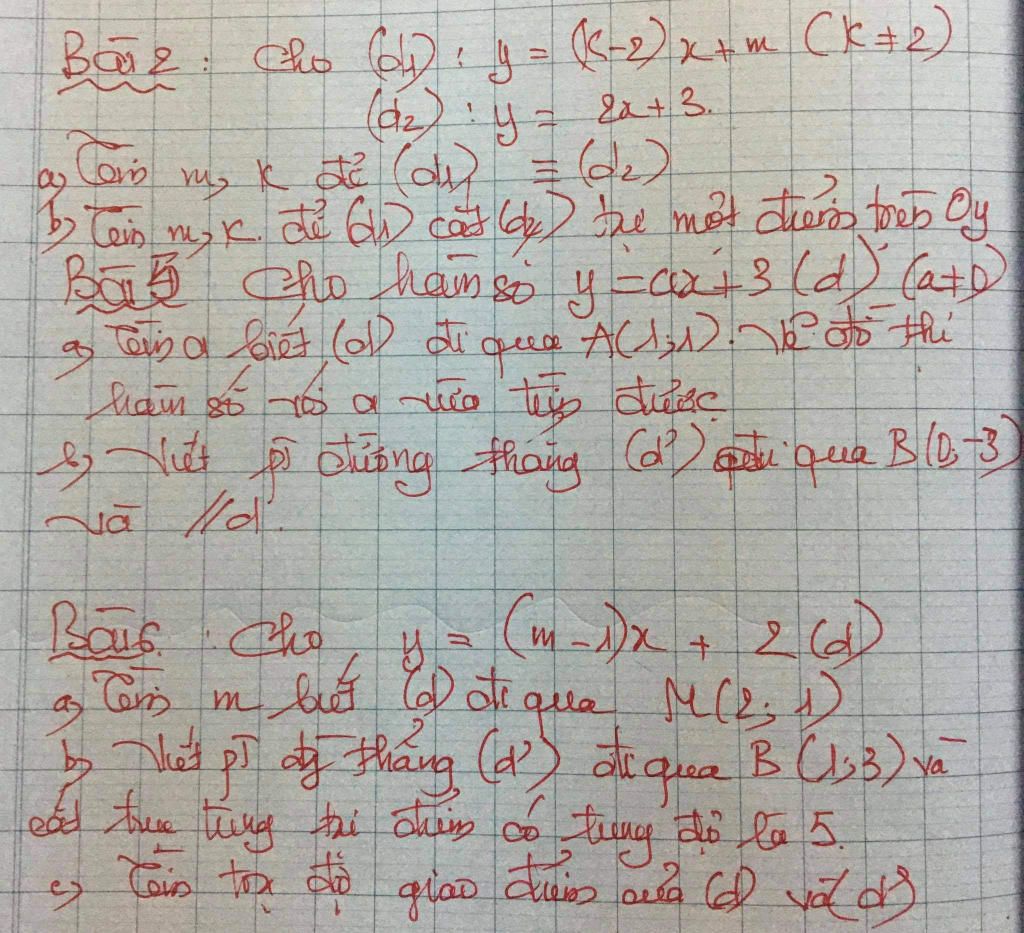 Bài 2 : Cho (d1) : y = (k-2)x + m (k ≠ 2)
(d2) : y = 2x + 3.
a, Tìm m, k để (d1) ≡ (d2)
b, Tìm m, k. để (d1) cắt (d2) tại một điểm trên Oy
Bài 5 Cho hàm số y = ax + 3 (d) (a ≠ 0)
a, Tìm a biết (d) đi qua A(1;1). Vẽ đồ thị
hàm số với a vừa tìm được
b, Viết pt đường thẳng (d') đi qua B(0;-3)
và // d.
Bài 6 : Cho y = (m-1)x + 2 (d)
a, Tìm m biết (d) đi qua M(2; 1)
b, Viết pt đg thẳng (d') đi qua B (1;3) và
cắt trục tung tại điểm có tung độ là 5.
c, Tìm toạ độ giao điểm của (d) và (d')